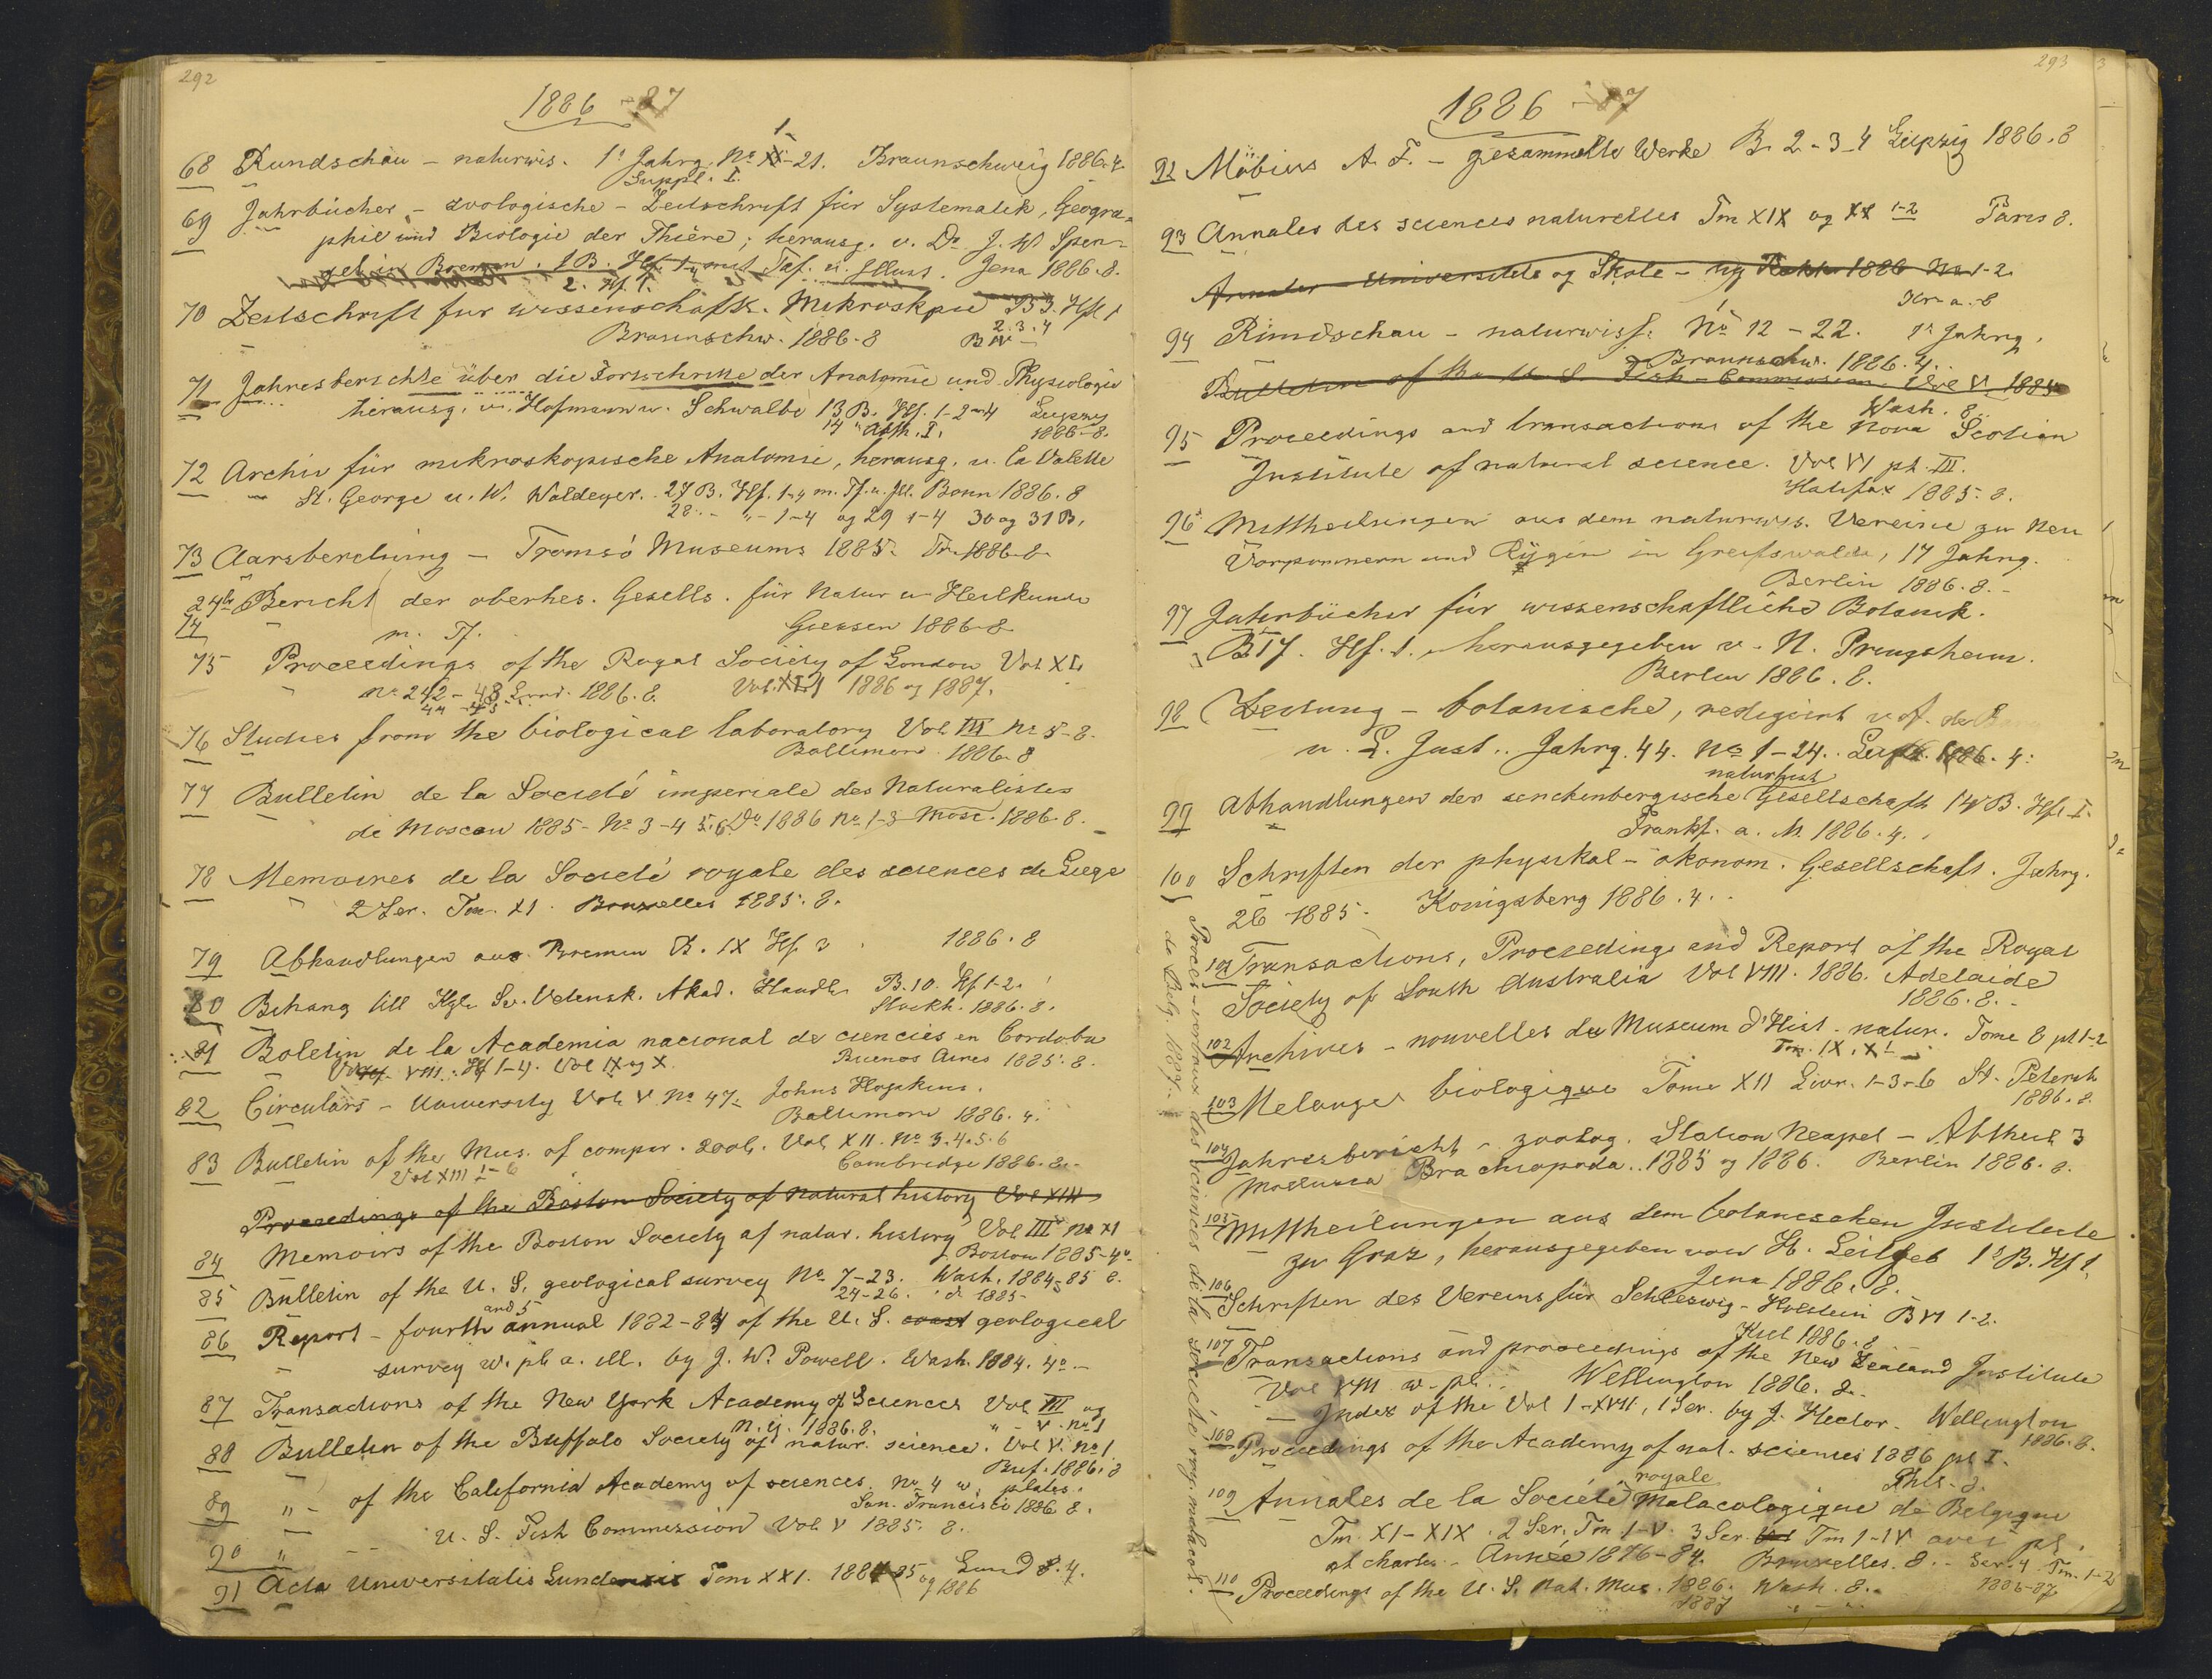 292
1886-87
68 Rundschau - naturwis. 1' Jahrg. No XX-21. Braunschweig 1886.4.
1
Suppl. I.
69 Jahrbücher - zoologische - Zeitschrift für Systematik, Geogra=
phie und Biologie der Thiere; herausg. v. Dr J. W Spen-
gel in Bremen. 1 B. Hf. 1-4 mit Taf. u. Illust. Jena 1886.8.
2. Hf. 1.
70 Zeitschrift fur wissenschaftl. Mikroskpie B 3. Hft 1
2.3.4
Braunschw. 1886.8 B IV -
71 Jahresberichte über die Fortschritte der Anatomie und Physiologie
herausg. v. Hofmann u. Schwalbe 13 B. Hf. 1-2-4 Leipzig
14 " Abth. I. 1886-8.
72 Archiv für mikroskopische Anatomie, herausg. v. la Valette
St. George u. W. Waldeyer. 27 B. Hf. 1-4 m. Tf. u. Ill. Bonn 1886.8
28.- "- 1-4 og 29 1-4 30 og 31 B.
73 Aarsberetning - Tromsö Museums 1885. Tr. 1886.8
24de Bericht der oberhes. Gesells. für Natur u- Heilkunde
74 m. Tf. Giessen 1886.8
75 Proceedings of the Royal Society of London Vol XL
No 242-48 Lond. 1886.8. Vol. XLI 1886 og 1887.
44-45
76 Studies from the biological laboratory Vol III No 5-8.
Baltimore 1886.8
77 Bulletin de la Societé imperiale des Naturalistes
de Moscou 1885 - No 3-4 5.6. Do 1886 No 1-3 Mosc. 1886.8.
78 Memoires de la Societé royale des sciences de Liege
2 Ser. Tm. XI. Bruxelles 1885.8.
79 Abhandlungen aus Bremen B. IX Hf. 3 1886.8
80 Bihang till Kgl. Sv. Vetensk. Akad. Handl. B.10. Hf 1-2.
Stockh. 1886.8.
81 Boletin de la Academia nacional de ciencies en Cordoba
VIII. Hf 1-4. Vol IX og X. Buenos Aires 1885.8.
82 Circulars - University Vol. V No 47. Johns Hopkins.
Baltimore 1886.4.
83 Bulletin of the Mus. of compar. zool. Vol XII. No 3.4.5.6
Vol XIII 1-6 Cambridge 1886.8.
Proceedings of the Boston Society of Natural history Vol XIII
84 Memoirs of the Boston Society of natur. history Vol III No XI
Boston 1885-4o.
85 Bulletin of the U. S. geological survey No 7-23. Wash. 1884-85 8.
24-26. 1885
86 Report - fourth annual 1882-84 of the U. S. coast geological
and 5
survey w. pl. a. ill. by J. W. Powell. Wash. 1884. 4o.-
87 Transactions of the New York Academy of Sciences Vol III og
N. Y. 1886.8. "- V. No 1
88 Bulletin of the Buffalo Society of natur. science. Vol V. No 1
Buf. 1886.8
89 "- of the California Academy of sciences. No 4 w. plates.
San. Francisco 1886 8.
90 " -- U. S. Fish Commission Vol V 1885. 8.
91 Acta Universitatis Lundensis Tom XXI. 1884-85 Lund 8.4.
og 1886
293
1886-87
92 Möbius A. F. - gesammelte Werke B. 2-3-4 Leipzig 1886.8
93 Annales des sciences naturelles Tm XIX og XX 1-2 Paris 8.
Annaler - Universitets og Skole - ny 1886 No 1-2
Kr-a.8
94 Rundschau - naturwiss. No 12-22. 1r Jahrg.
Braunschw. 1886.4.
Bulletin of the U. S. Fish-Commission. Vol V. 1885
Wash. 8.
95 Proceedings and transactions of the Nova Scotian
Institute of natural science. Vol VI pt. III.
Halifax 1885.8.
96 Mittheilungen aus dem naturwis. Vereine zu Neu
Vorpommern und Rügen in Greifswalde, 17 Jahrg.
Berlin 1886.8.-
97 Jahrbücher für wissenschaftliche Botanik.
B 17. Hf. 1. herausgegeben v. N. Pringsheim.
Berlin 1886.8.
98 Zeitung - botanische, redigiert v A. de Bary
u. L. Just. Jahrg. 44. No 1-24. Leipz. 1886.4.
99 Abhandlungen der senckenbergische Gesellschaft 14 B. Hft I.
naturforst
Frankf. a. M. 1886.4.
100 Schriften der physikal-ökonom. Gesellschaft. Jahrg.
26 1885. Königsberg 1886.4.
101 Transactions, Proceedings and Report of the Royal
Society of South Australia Vol VIII. 1886. Adelaide
1886.8.-
102 Archives - nouvelles du Museum d'Hist. natur. Tome 8 pt 1-2
Tm. IX, XI
103 Melanges biologique Tome XII Livr. 1-3-6 St. Petersb
1886.8.
104 Jahresbericht - zoolog. Station Neapel - Abtheil 3
Mollusca Brachiopoda. 1885 og 1886. Berlin 1886.8.
105 Mittheilungen aus dem botanischen Institute
zu Graz, herausgegeben von H. Leitgeb 1s B. Hf 1.
Jena 1886.8.
106 Schriften des Vereins für Schleswig-Holstein B VI 1-2.
Kiel 1886.8
107 Transactions and proceedings of the New Zealand Institute
Vol XVIII w. pl. Wellington 1886.8.
- Index of the Vol I-XVII, 1 Ser. by J. Hector. Wellington
1886.8.
108 Proceedings of the Academy of nat. sciences 1886 pt I.
Phil. 8.
109 Annales de la Societé malacologique de Belgique
royale
Tm. XI-XIX. 2 Ser. Tm. I-V. 3 Ser. Vol Tm 1-IV avec pl.
et chartes - Année 1876-84. Bruxelles. 8.- Ser. 4 Tm. 1-2
1886-87
110 Proceedings of the U. S. Nat. Mus. 1886. Wash. 8.
1887
Proces-verbaux des sciences de la société roy. malacol.
de Belg. 1887.